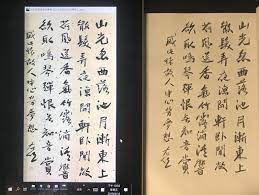 山光忽西落池月漸東上
散髮乘夜涼開軒卧閑敞
荷風送香氣竹露滴清響
欲取鳴琴彈恨無知音賞
感此懷故人中心勞夢想
山光忽西落池月漸東上
散髮乘夜涼開軒卧閑敞
荷風送香氣竹露滴清響
欲取鳴琴彈恨無知音賞
感此懷故人中心勞夢想